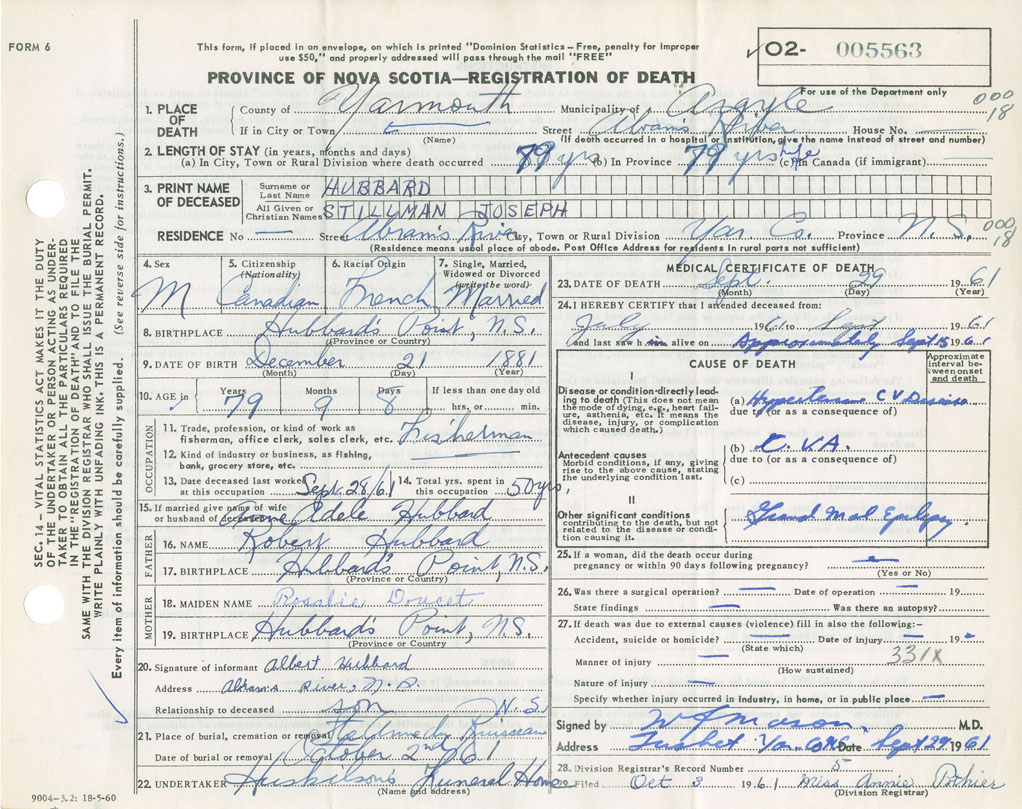 FORM 6
This form, if placed in an envelope, on which is printed "Dominion Statistics – Free, penalty for improper
use $50," and properly addressed will pass through the mail "FREE"
✓O2- 005563
PROVINCE OF NOVA SCOTIA—REGISTRATION OF DEATH
For use of the Department only
000
18
1. PLACE OF DEATH
County of Yarmouth Municipality of Argyle
If in City or Town (Name) Street Abrams River House No.
(If death occurred in a hospital or institution, give the name instead of street and number)
2. LENGTH OF STAY (in years, months and days)
(a) In City, Town or Rural Division where death occurred 79 yrs (b) In Province 79 yrs (c) In Canada (if immigrant) life
3. PRINT NAME OF DECEASED
Surname or Last Name HUBBARD
All Given or Christian Names STILLMAN JOSEPH
RESIDENCE No — Street Abram's River City, Town or Rural Division Yar. Co. Province N.S.
000
18
(Residence means usual place of abode. Post Office Address for residents in rural parts not sufficient)
4. Sex M
5. Citizenship (Nationality) Canadian
6. Racial Origin French
7. Single, Married, Widowed or Divorced (write the word) Married
8. BIRTHPLACE Hubbard's Point, N.S.
(Province or Country)
9. DATE OF BIRTH December 21 1881
(Month) (Day) (Year)
10. AGE in Years 79 Months 9 Days 8 If less than one day old hrs. or min.
OCCUPATION
11. Trade, profession, or kind of work as
fisherman, office clerk, sales clerk, etc. Fisherman
12. Kind of industry or business, as fishing,
bank, grocery store, etc.
13. Date deceased last worked at this occupation Sept. 28/61
14. Total yrs. spent in this occupation 50 yrs.
15. If married give name of wife
or husband of deceased Anne Adele Hubbard
FATHER
16. NAME Robert Hubbard
17. BIRTHPLACE Hubbard's Point, N.S.
(Province or Country)
MOTHER
18. MAIDEN NAME Rosalie Doucet
19. BIRTHPLACE Hubbard's Point, N.S.
(Province or Country)
20. Signature of informant Albert Hubbard
Address Abram's River, N.S.
Relationship to deceased son N.S.
21. Place of burial, cremation or removal Ruisseau
Date of burial or removal October 2nd 1961
22. UNDERTAKER Huskilson's Funeral Home
(Name and address)
MEDICAL CERTIFICATE OF DEATH
23. DATE OF DEATH Sept. 29 1961
(Month) (Day) (Year)
24. I HEREBY CERTIFY that I attended deceased from:
July 1961 to Sept 1961
and last saw him alive on Approximately Sept 15 1961
CAUSE OF DEATH
Approximate interval between onset and death
I
Disease or condition directly leading to death (This does not mean the mode of dying, e.g., heart failure, asthenia, etc. It means the disease, injury, or complication which caused death.)
(a) Hypertensive C V Disease
due to (or as a consequence of)
Antecedent causes
Morbid conditions, if any, giving rise to the above cause, stating the underlying condition last.
(b) C.V.A.
due to (or as a consequence of)
(c)
II
Other significant conditions
contributing to the death, but not related to the disease or condition causing it.
Grand Mal Epilepsy
25. If a woman, did the death occur during
pregnancy or within 90 days following pregnancy? —
(Yes or No)
26. Was there a surgical operation? — Date of operation — 19
State findings — Was there an autopsy?
27. If death was due to external causes (violence) fill in also the following:–
Accident, suicide or homicide? — Date of injury — 19
(State which)
331X
Manner of injury —
(How sustained)
Nature of injury —
Specify whether injury occurred in industry, in home, or in public place —
Signed by M.D.
Address Tusket Yar. Co. N.S. Date Sept 29 1961
28. Division Registrar's Record Number 5
29. Filed Oct 3 1961 Miss Annie Pothier
(Division Registrar)
SEC. 14 – VITAL STATISTICS ACT MAKES IT THE DUTY
OF THE UNDERTAKER OR PERSON ACTING AS UNDER-
TAKER TO OBTAIN ALL THE PARTICULARS REQUIRED
IN THE "REGISTRATION OF DEATH" AND TO FILE THE
SAME WITH THE DIVISION REGISTRAR WHO SHALL ISSUE THE BURIAL PERMIT.
WRITE PLAINLY WITH UNFADING INK. THIS IS A PERMANENT RECORD.
Every item of information should be carefully supplied. (See reverse side for instructions.)
9004–3.2: 18-5-60